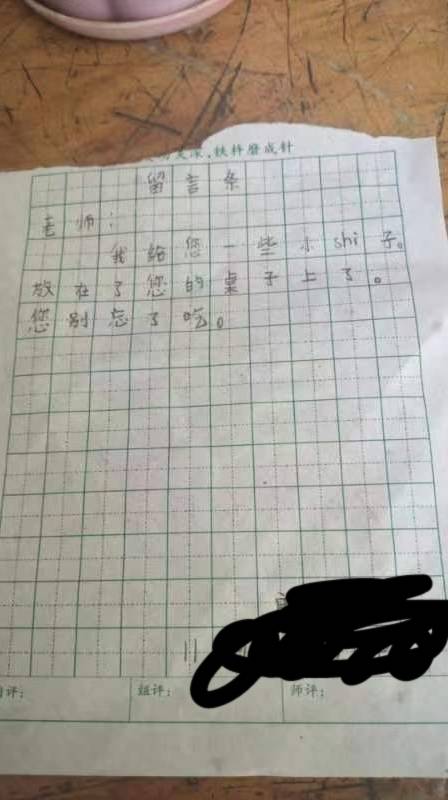 铁杵磨成针
留言条
老师：
我给您一些小shi子。
放在了您的桌子上了。
您别忘了吃。
组评：
师评：